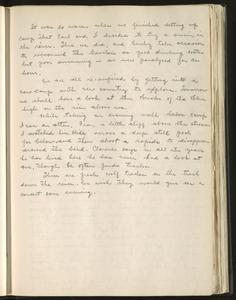 It was so warm when we finished setting up
camp that Carl and I decided to try a swim in
the river. This we did, and
to recommend the as good drinking water
but poor swimming - as were paralyzed for an
hour.
We are all re-inspired by getting into a
new camp with new country to explore. Tomorrow
we shall have a look at the Forks of the
high on the river above us.
While taking an evening walk below camp
I saw an otter, from a little cliff above the stream
I watched him slide across a deep still pool
far below and then shoot a rapids to disappear
around the bend. Clarence says in all the years
he has lived here he has never had a look at
one, though he often finds tracks.
There are fresh wolf tracks on the trail
down the river. We wish they would give us a
concert some evening.